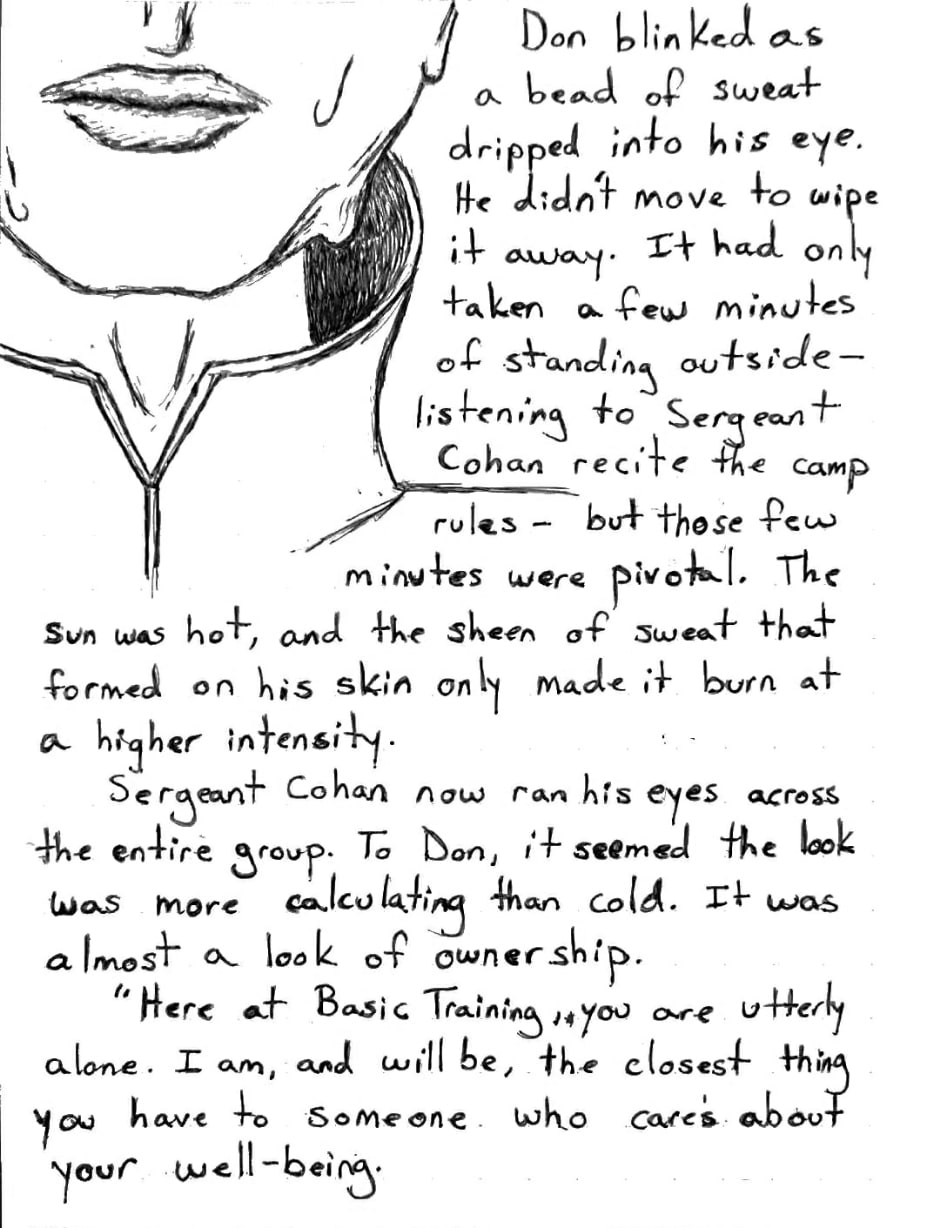 Don blinked as
a bead of sweat
dripped into his eye.
He didn't move to wipe
it away. It had only
taken a few minutes
of standing outside—
listening to Sergeant
Cohan recite the camp
rules – but those few
minutes were pivotal. The
sun was hot, and the sheen of sweat that
formed on his skin only made it burn at
a higher intensity.
Sergeant Cohan now ran his eyes across
the entire group. To Don, it seemed the look
was more calculating than cold. It was
almost a look of ownership.
"Here at Basic Training, you are utterly
alone. I am, and will be, the closest thing
you have to someone who cares about
your well-being.